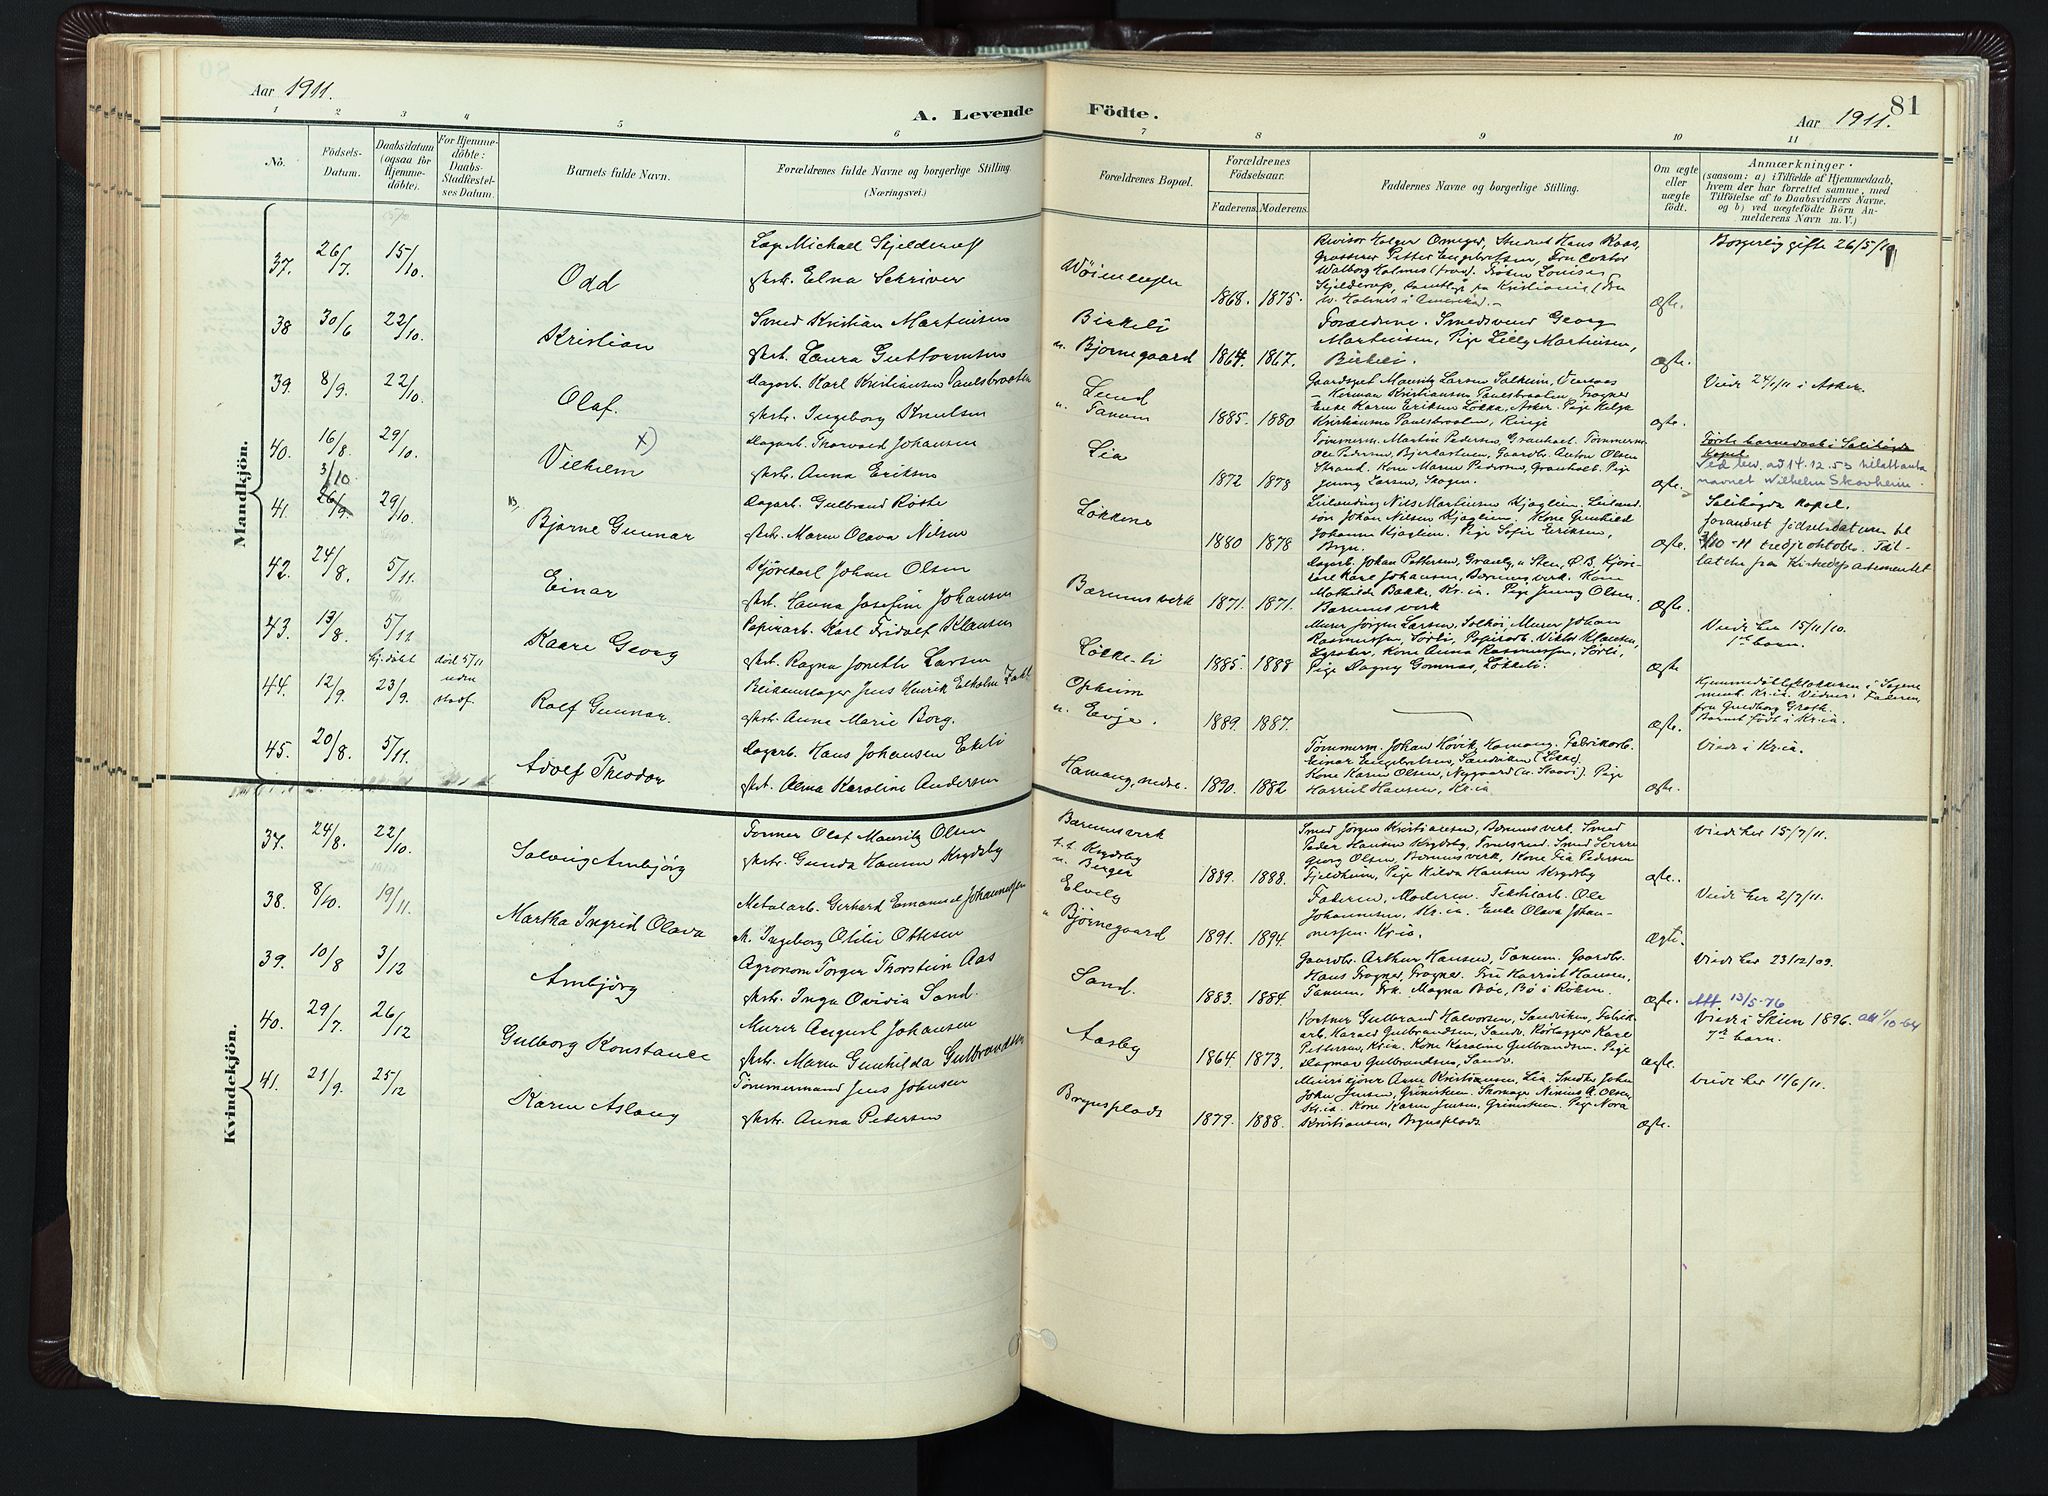 Aar 1911.
A. Levende Födte.
81
Aar 1911.
1 2 3 4 5 6 7 8 9 10 11
No.
Födsels-
Datum.
Daabsdatum
(ogsaa för
Hjemme-
döbte).
For Hjemme-
döbte:
Daabs-
Stadfæstel-
ses Datum.
Barnets fulde Navn.
Forældrenes fulde Navne og borgerlige Stilling.
(Næringsvei.)
Forældrenes Bopæl.
Forældrenes
Födselsaar.
Faderens. Moderens.
Faddernes Navne og borgerlige Stilling.
Om ægte
eller
uægte
födt.
Anmærkninger
(saasom: a) i Tilfælde af Hjemmedaab,
hvem der har forrettet samme, med
Tilföielse af to Daabsvidners Navne.
og b) ved uægtefödte Börn An-
melderens Navn m. V.)
Mandkjön.
37. 26/7. 15/10. Odd
Michael Skjelderup
Hstr. Elna Schriver
Wøienengen
1868. 1875.
Revisor Holger Omeyer, Student Hans Kaas,
Grosserer Petter Engebretsen, Fru Doktor
Walborg Holmes (fravæ). Frøken Louise
Skjelderup, samtlige fra Kristiania (Fru
W. Holmes i Amerika). –
Ægte.
Borgerlig gifte 26/5/10
38 30/6 22/10. Kristian
Smed Kristian Martinsen
Hstr. Laura Guttormsen
Birkeli
u. Bjørnegaard
1864. 1867.
Forældrene. Smedsvend Georg
Martinsen, Pige Lilly Martinsen,
Birkeli.
Ægte.
39. 8/9. 22/10. Olaf.
Dagarb. Karl Kristiansen Paulsbraaten
Hstr. Ingeborg Knutsen
Lund
u. Tanum
1885. 1880
Gaardbr. Mauritz Larsen Solheim,
Herman Kristiansen Paulsbraaten, Frogner
Enke Karen Eriksen Løkka, Asker. Pige Helga
Kristiansen Paulsbraaten, Ringi
Ægte.
Viede 24/1/11 i Asker.
40. 16/8. 29/10. Vilhelm x)
Dagarb. Thorvald Johansen
Hstr. Anna Eriksen
Lia
1872 1878
Tømmerm. Martin Pedersen, Granholt. Tømmerm.
Ole Pedersen, Bjerkashuen, Gaardbr. Anton Olsen
Strand. Kone Maren Pedersen, Granholt. Pige
Jenny Larsen, Skogen.
Ægte.
Første barnedaab i Solihøgda
Kapel
Ved bev. ad 14.12.53 tillatt anta
navnet Wilhelm Skovheim.
41. 3/10. 26/9. 29/10. Bjarne Gunnar
Dagarb. Gulbrand Røtte
Hstr. Maren Olava Nilsen
Løkkene
1880 1878
Leilænding Nils Martinsen Kjaglien, Leilænd.
søn Johan Nilsen Kjaglien. Kone Gunhild
Johanne Kjaglien. Pige Sofie Eriksen,
Bryn.
Ægte.
Solihøgda Kapel.
forandret fødselsdatum til
3/10 -11 tredje oktober. Til-
latelse fra Kirkedepartementet
42. 24/8. 5/11. Einar
Kjørekarl Johan Olsen
Hstr. Hanna Josefine Johansen
Bærums verk
1871. 1871.
Dagarb. Johan Pettersen, Kjøre-
Kare Johansen, Bærums verk. Kone
Mathilde Bakke, Kr.ia. Pige Jenny Olsen.
Bærums verk
Ægte.
43. 13/8. 5/11 Kaare Georg
Papirarb. Karl Fridolf Klausen
Hstr. Ragna Jonette Larsen
Løkke-li
1885. 1888
Murer Jørgen Larsen, Solhøi, Murer Johan
Rasmussen, Sørli, Papirarb. Viktor Klausen,
Kone Anna Rasmussen, Sørli,
Pige Dagny Gomnæs, Løkkeli.
Ægte
Viede her 15/11/10.
1ste barn.
44. 12/9. hj.døbt 23/9. død 5/11 uden stadf.
Rolf Gunnar.
Blikkenslager Jens Henrik Elholm
Hstr. Anna Marie Borg.
Opheim
u. Evje.
1889. 1887.
Ægte.
Barnet født i Kr.ia.
45. 20/8. 5/11. Adolf Theodor
Dagarb. Hans Johansen Ekeli
Hstr. Alma Karoline Andersen
Hamang, nedre.
1890. 1882
Tømmerm. Johan Høvik, Hamang. Fabrikarb.
Einar Engebretsen, Sandviken (Løkke).
Kone Karen Olsen, Nygaard (u. Staavi). Pige
Harriet Hansen, Kr.ia
Ægte.
Viede i Kr.ia.
Kvindekjön.
37. 24/8. 22/10. Solveig Ambjørg
Former Olaf Mauritz Olsen
Hstr. Gunda Hansen Krydsby
Bærums verk
f.t. Krydsby
u. Berger
1889. 1888.
Smed Jørgen Kristiansen, Bærums verk. Smed
Peder Hansen Krydsby,
Georg Olsen, Bærums verk, Kone Tia Pedersen
Fjeldheim, Pige Hilda Hansen Krydsby
Ægte.
Viede her 15/7/11.
38. 8/10. 19/11. Martha Ingrid Olava
Metalarb. Gerhard Emanuel Johannessen
H. Ingeborg Otilie Ottesen
Elvely
u. Bjørnegaard
1891. 1894.
Faderen, Moderen. Tekstilarb. Ole
Johannesen, Kr.ia. Enke Olava Johan-
nessen. Kr.ia.
Ægte.
Viede her 2/7/11.
39. 10/8 3/12 Ambjörg
Agronom Torger Thorstein Aas
Hstr. Inga Ovidia Sand.
Sand.
1883. 1884.
Gaardbr. Arthur Hansen, Tanum. Gaardbr.
Hans Frogner, Frogner. Fru Harriet Hansen,
Tanum, Frk. Magna Bøe, Bø i Røken.
Ægte.
Viede her 23/12/09.
Att 13/5-76
40. 29/7. 26/12 Gulborg Konstance
Murer August Johansen
Hstr. Maren Gunhilda Gulbrandsen
Aasby
1864. 1873.
Gulbrand Halvorsen, Sandviken, Fabrik-
arb. Harald Gulbrandsen, Sandv. Rørlægger Karl
Pettersen, Kr.ia. Kone Karoline Gulbrandsen. Pige
Dagmar Gulbrandsen, Sandv.
Ægte.
Viede i Skien 1896. att 1/10-64
7de barn.
41. 21/9. 25/12 Karen Aslaug
Tømmermand Jens Johnsen
Hstr. Anna Pedersen
Brynsplads
1879. 1888.
Arne Kristiansen, Lia. Snedker Johan
John Jensen, Grinisken. Skomager Ninius A. Olsen,
Kr.ia. Kone Karen Jensen, Grinisken. Pige Nora
Kristiansen, Brynsplads
Ægte.
Viede her 11/6/11.